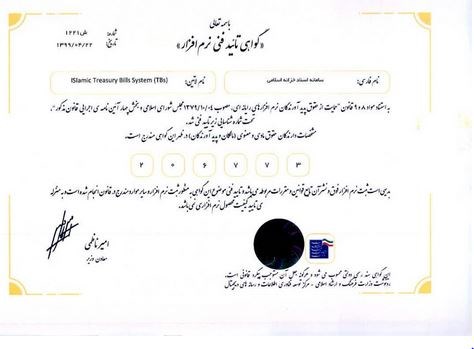 باسمه تعالی
«گواهی تائید فنی نرم افزار»
شماره: ش۱۲۲۱
تاریخ: ۱۳۹۹/۰۴/۲۲
نام فارسی: سامانه اسناد خزانه اسلامی
نام لاتین: ISlamic Treasury Bills System (TBs)
به استناد مواد ۸ و ۹ قانون «حمایت از حقوق پدید آورندگان نرم افزارهای رایانه ای» مصوب ۱۳۷۹/۱۰/۰۴ مجلس شورای اسلامی و بخش چهار آئین نامه ی اجرایی قانون مذکور،
تحت شماره شناسایی زیر تایید فنی شد.
مشخصات دارندگان حقوق مادی و معنوی (مالکان و پدید آورندگان) در ظهر این گواهی مندرج است.
۲۰۶۷۷۳
بدیهی است ثبت نرم افزار فوق و نشر آن تابع قوانین و مقررات مربوطه می باشد و تایید فنی موضوع این گواهی، به منظور ثبت نرم افزار و سایر موارد مندرج در قانون انجام شده و به منزله
ی تایید کیفیت محصول نرم افزاری نمی باشد.
امیر ناظمی
معاون وزیر
این گواهی سند رسمی دولتی محسوب می شود و هرگونه جعل آن مستوجب پیگرد قانونی است.
رونوشت وزارت فرهنگ و ارشاد اسلامی - مرکز توسعه فناوری اطلاعات و رسانه های دیجیتال